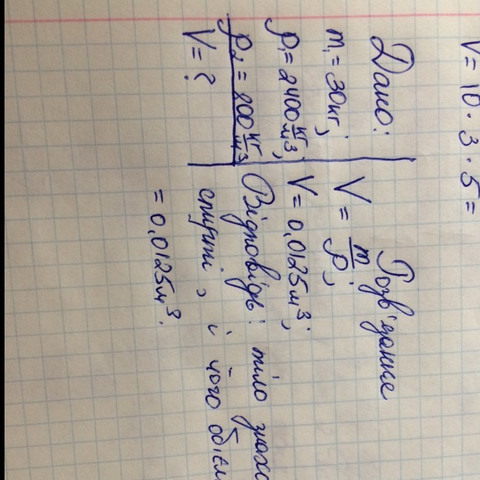 V = 10 · 3 · 5 =
Дано:
m₁ = 30 кг;
ρ₁ = 2400 кг/м³;
ρ₂ = 800 кг/м³
V = ?
Розв'язання
V = m/ρ;
V = 0,0125 м³;
Відповідь: тіло
спирті, і чого
= 0,0125 м³.